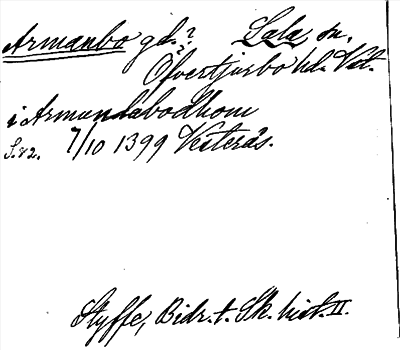 Armanbo gd.? Sala sn.
Öfvertjurbo hd. Vst.
i Armundabodhom
S. 82. 7/10 1399 Vesterås.
Styffe, Bidr. t. Sk. hist. II.